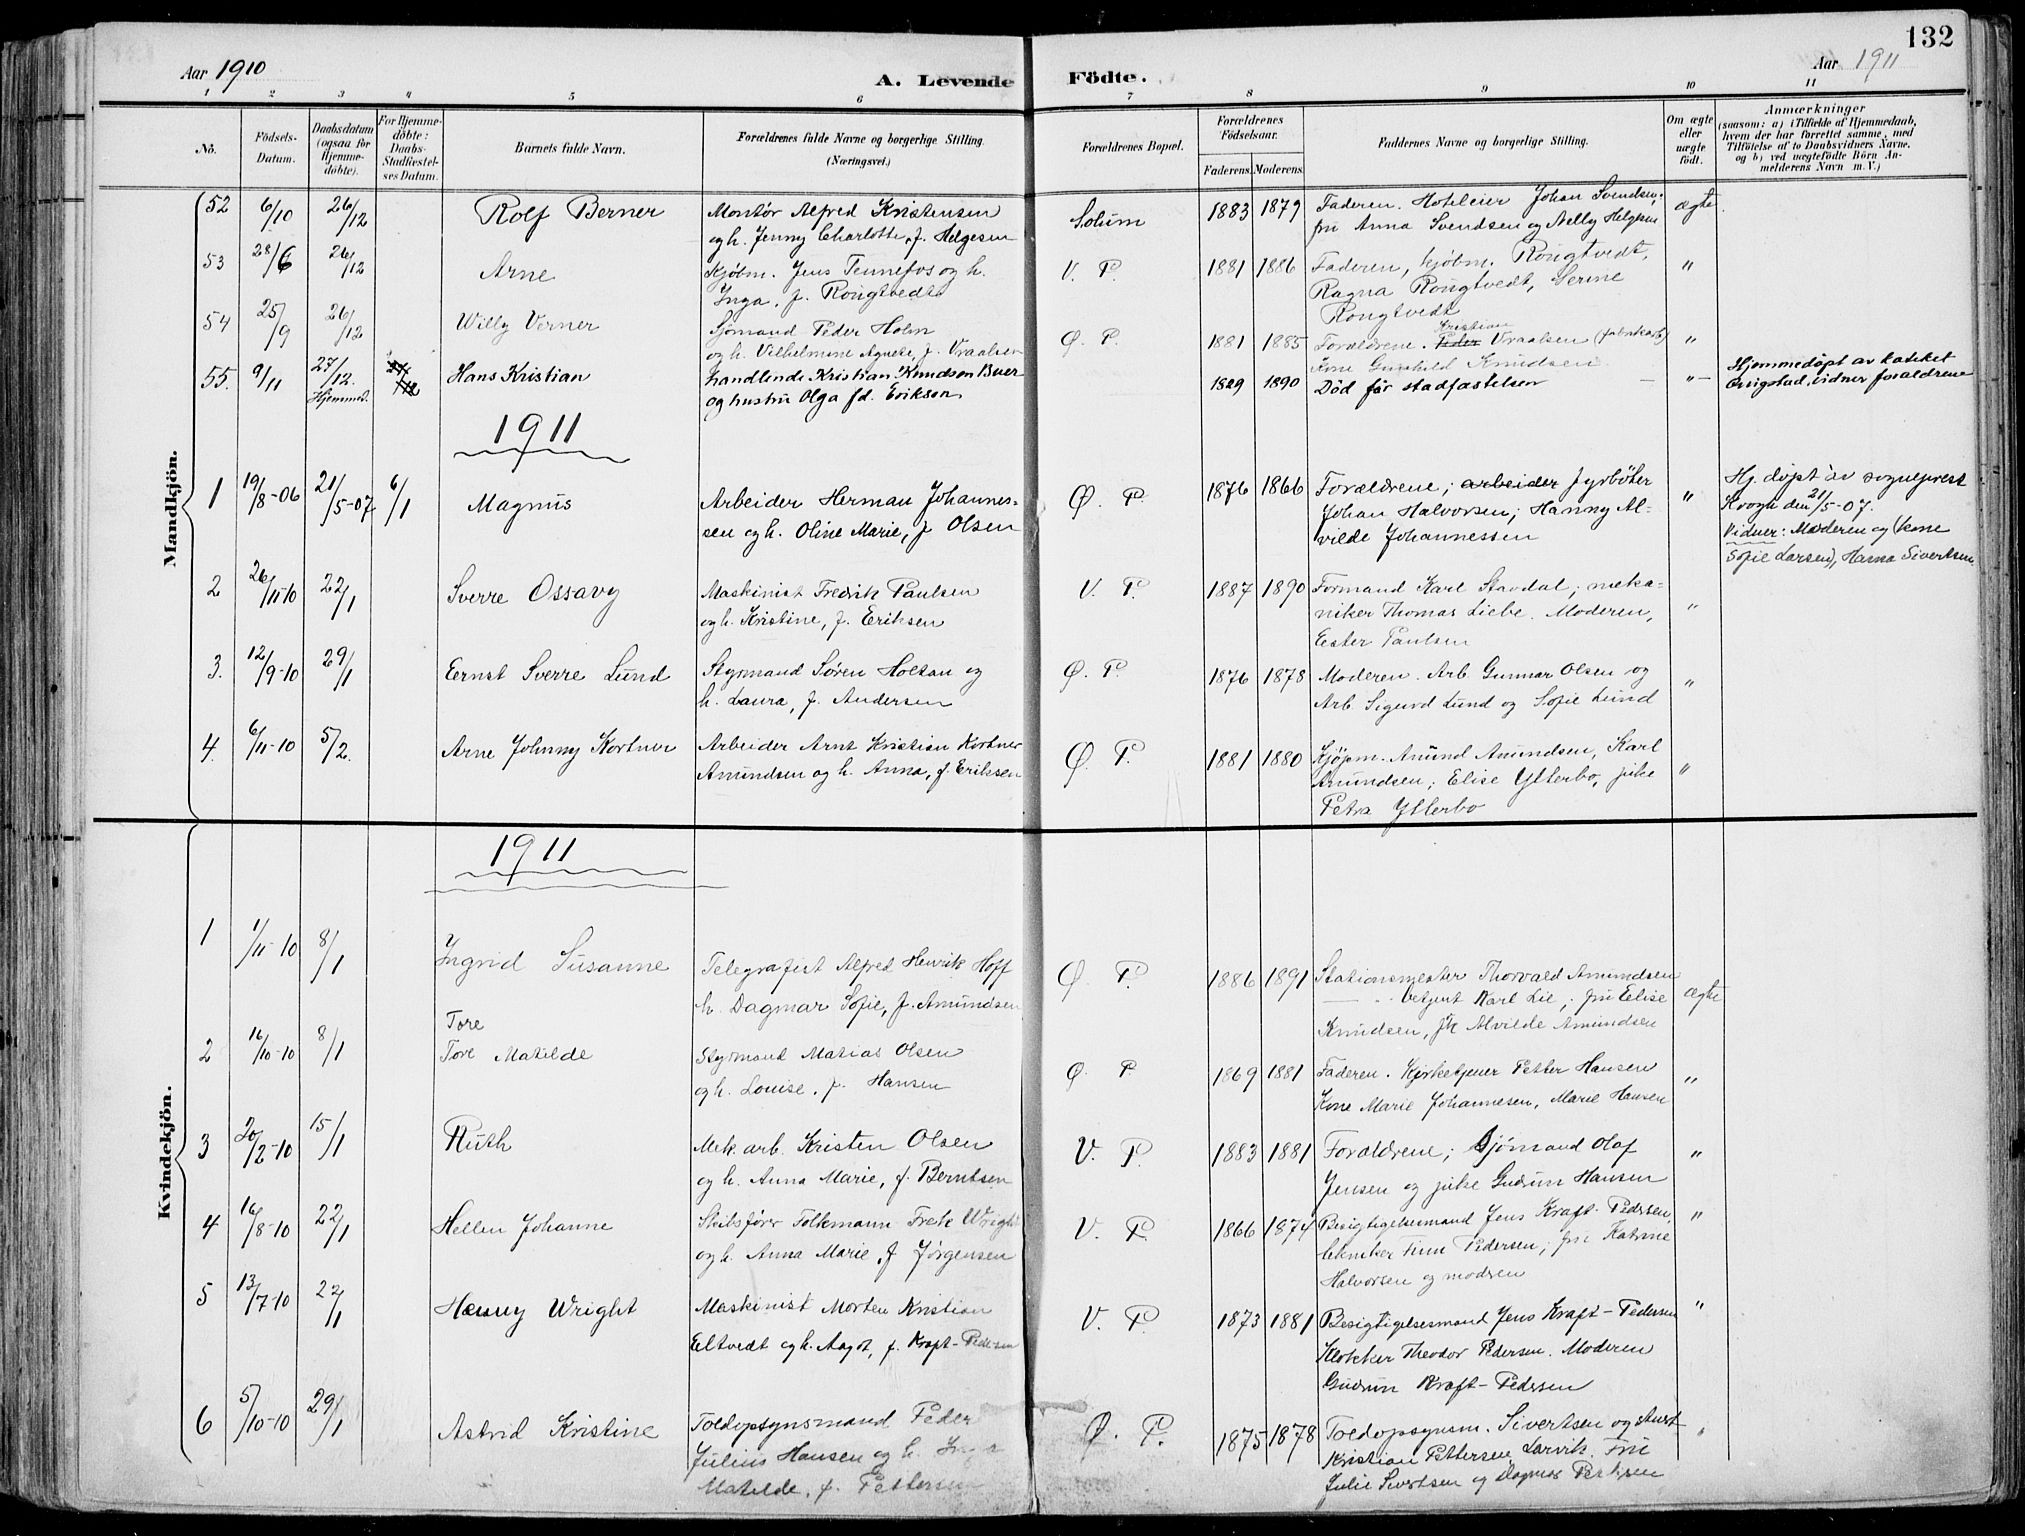 132
Aar 1910
A. Levende Födte.
Aar 1911
1 2 3 4 5 6 7 8 9 10 11
No.
Födsels-Datum.
Daabsdatum (ogsaa for Hjemmedöbte).
For Hjemmedöbte: Daabs-Stadfæstelses Datum.
Barnets fulde Navn.
Forældrenes fulde Navne og borgerlige Stilling. (Næringsvei.)
Forældrenes Bopæl.
Forældrenes Födselsaar.
Faderens. Moderens.
Faddernes Navne og borgerlige Stilling.
Om ægte eller uægte födt.
Anmærkninger
(saasom: a) i Tilfælde af Hjemmedaab, hvem der har forrettet samme, med Tilföielse af to Daabsvidners Navne. og b) ved uægtefödte Börn Anmelderens Navn m. V.)
Mandkjön.
52 6/10 26/12 Rolf Berner Montør Alfred Kristensen Solum 1883 1879 Faderen. Hoteleier Johan Svendsen, ægte
og h. Jenny Charlotte, f. Helgesen fru Anna Svendsen og Nelly Helgesen
53 28/6 26/12 Arne Kjøbm. Jens Tennefos og h. V. P. 1881 1886 Faderen, kjøbm. Rougtvedt, "
Inga, f. Rougtvedt Ragna Rougtvedt, Serine
Rougtvedt
54 25/9 26/12 Willy Verner Sjømand Peder Holm Ø. P. 1881 1885 Forældrene. Kristian Vraalsen (fabrikarb) "
og h. Vilhelmine Agnete, f. Vraalsen Gunhild Knudsen
55. 9/11 27/12. Hjemmed. Hans Kristian Handlende Kristian Knudson Buer 1889 1890 Død før stadfæstelsen "— Hjemmedøpt av kateket
og hustru Olga fd. Erikson vidner forældrene
1911
1 19/8-06 21/5-07 6/1 Magnus Arbeider Herman Johannes- Ø. P. 1876 1866 Forældrene; arbeider Fyrbøter " Hj. døpt av sogneprest
sen og h. Oline Marie, f. Olsen Johan Halvorsen; Hanny Al- Krogh den 21/5-07.
vilde Johannessen Vidner: Moderen og (kone
Sofie Larsen), Hanna Sivertsen
2 26/11-10 22/1 Sverre Ossavy Maskinist Fredrik Paulsen V. P. 1887 1890 Formand Karl Stavdal; meka- "
og h. Kristine, f. Eriksen niker Thomas Liebe. Moderen,
Ester Paulsen
3. 12/9-10 29/1 Ernst Sverre Lund Styrmand Søren Holtan og Ø. P. 1876 1878 Moderen. Arb. Gunnar Olsen og "
h. Laura, f. Andersen Arb. Sigurd Lund og Sofie Lund
4. 6/11-10 5/2. Arne Johnny Kortner Arbeider Arnt Kristian Kortner Ø. P. 1881 1880 Kjöpm. Anund Amundsen, Karl "
Amundsen og h. Anna, f. Eriksen Amundsen; Elise Ytterbo, frke
Petra Ytterbo
Kvindekjön.
1911
1 1/11-10 8/1 Ingrid Susanne Telegrafist Alfred Henrik Hoff Ø. P. 1886 1891 Stationsmester Thorvald Amundsen ægte
h. Dagmar Sofie, f. Amundsen betjent Karl Lie; fru Elise
Knudsen, frk Alvilde Amundsen
Tore
2 16/10-10 8/1 Tore Matilde Styrmand Matias Olsen Ø. P. 1869 1881 Faderen. Kirketjener Petter Hansen "
og h. Louise. f. Hansen Kone Marie Johannesen, Marie Hansen
3 20/2-10 15/1 Ruth Mek. arb. Kristen Olsen V. P. 1883 1881 Forældrene; Sjømand Olaf "
og h. Anna Marie, f. Berntsen Jensen og frke Gudrun Hansen
4 16/8-10 22/1 Hellen Johanne Skibsfører Folkmann Fredk Wright V. P. 1866 1874 Besigtigelsesmand Jens Kraft-Pedersen, "
og h. Anna Marie, f. Jørgensen tekniker Finn Pedersen; fru Katrine
Halvorsen og modren
5 13/7-10 22/1 Henny Wright Maskinist Morten Kristian V. P. 1873 1881 Besigtigelsesmand Jens Kraft-Pedersen "
Eltvedt og h. Aagot, f. Kraft-Pedersen Klokker Theodor Pedersen. Moderen
Gudrun Kraft-Pedersen
6 5/10-10 29/1 Astrid Kristine Toldopsynsmand Peder Ø. P. 1875 1878 Toldopsynsm. Sivertsen og "
Julius Hansen og h. Kristian Pettersen, Larvik. Fru
Matilde, f. Pettersen Julie Sivertsen og Dagmar Pettersen